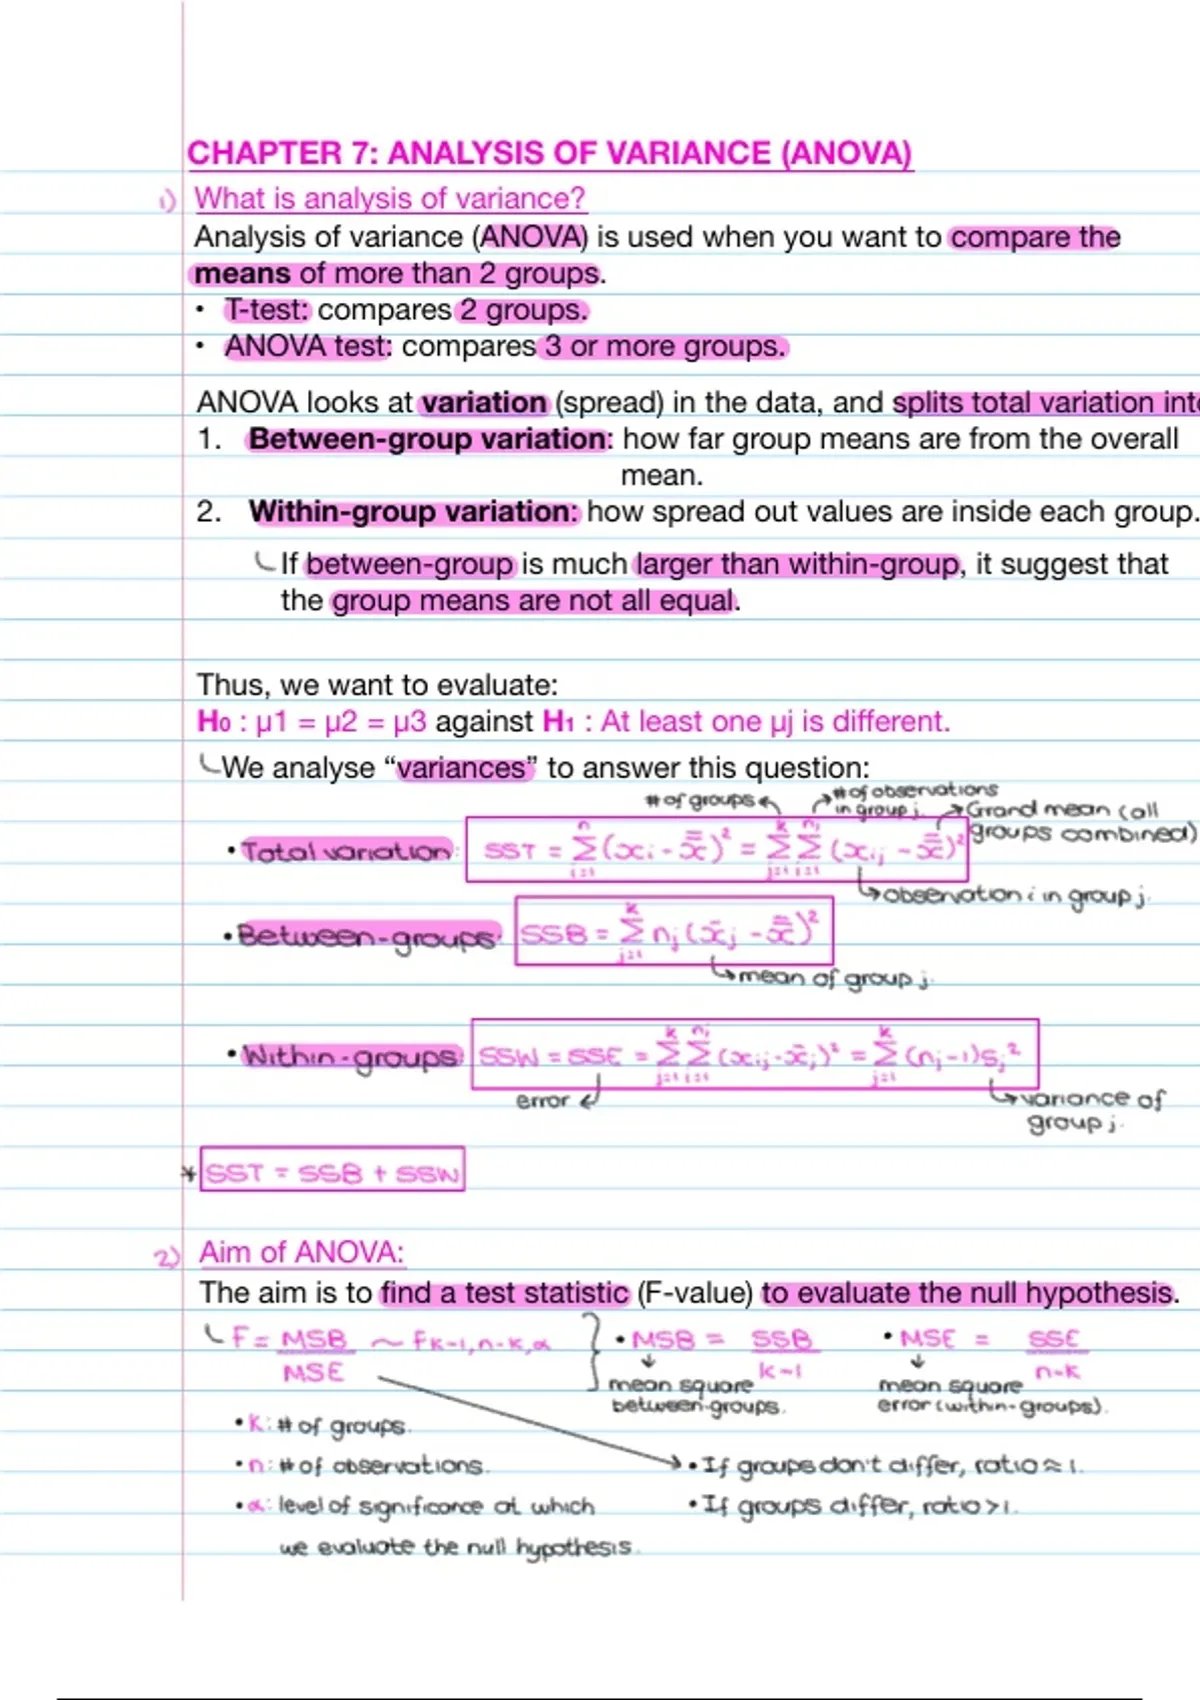 CHAPTER 7: ANALYSIS OF VARIANCE (ANOVA)
1) What is analysis of variance?
Analysis of variance (ANOVA) is used when you want to compare the
means of more than 2 groups.
• T-test: compares 2 groups.
• ANOVA test: compares 3 or more groups.
ANOVA looks at variation (spread) in the data, and splits total variation into
1. Between-group variation: how far group means are from the overall
mean.
2. Within-group variation: how spread out values are inside each group.
If between-group is much larger than within-group, it suggest that
the group means are not all equal.
Thus, we want to evaluate:
H0 : µ1 = µ2 = µ3 against H1 : At least one µj is different.
We analyse “variances” to answer this question:
# of groups
# of observations
in group j.
Grand mean (all
groups combined)
• Total variation: SST = Σ_{i=1}^{n} (xi - x̿)² = Σ_{j=1}^{k} Σ_{i=1}^{nj} (xij - x̿)²
observation i in group j.
• Between-groups: SSB = Σ_{j=1}^{k} nj (x̄j - x̿)²
mean of group j.
• Within-groups: SSW = SSE = Σ_{j=1}^{k} Σ_{i=1}^{nj} (xij - x̄j)² = Σ_{j=1}^{k} (nj - 1)sj²
error
variance of
group j.
* SST = SSB + SSW
2) Aim of ANOVA:
The aim is to find a test statistic (F-value) to evaluate the null hypothesis.
F = MSB / MSE ~ fk-1, n-k, α } • MSB = SSB / k-1 • MSE = SSE / n-k
mean square between-groups.
mean square error (within-groups).
• k: # of groups.
• n: # of observations. → • If groups don't differ, ratio ≈ 1.
• α: level of significance at which • If groups differ, ratio > 1.
we evaluate the null hypothesis.